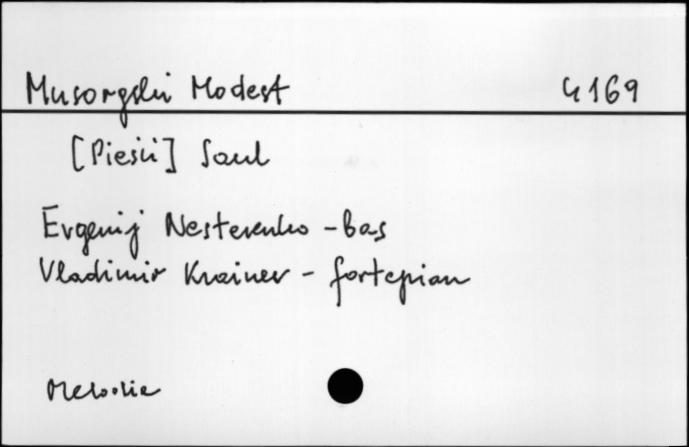 Musorgski Modest 4169
[Pieśń] Saul
Evgenij Nesterenko - bas
Vladimir Krainev - fortepian
Melodia